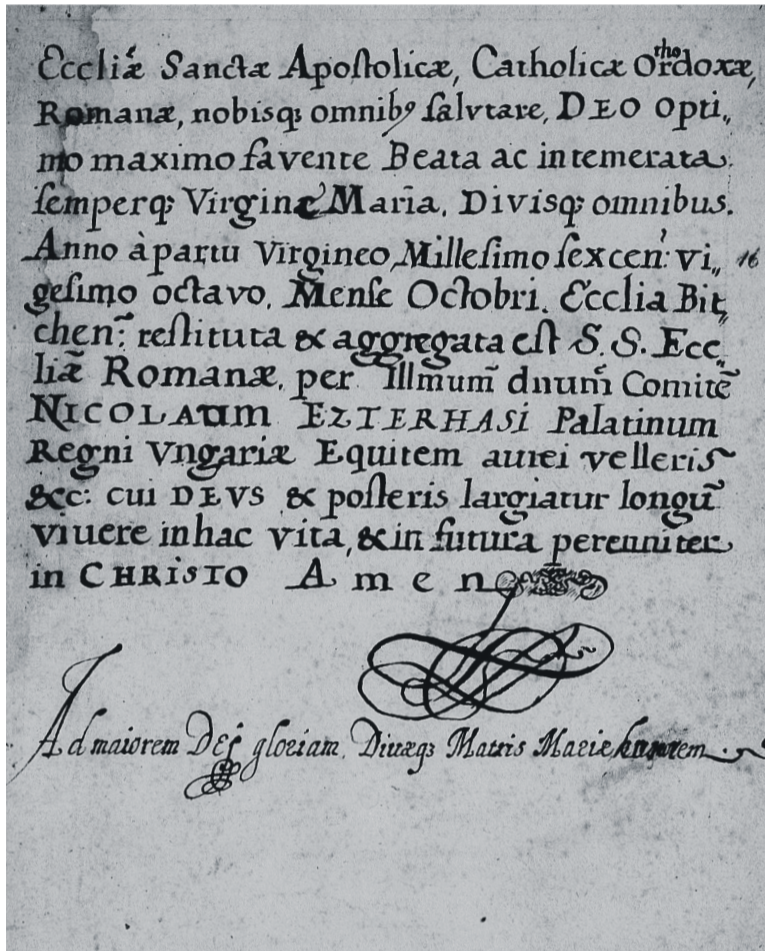 Eccliæ Sanctæ Apoſtolicæ, Catholicæ Orthodoxæ,
Romanæ, nobisq; omnibꝰ ſalvtare, DEO opti„
mo maximo favente Beata ac intemerata
ſemperq; Virgine Maria, Divisq; omnibus.
Anno à partu Virgineo, Milleſimo ſexcen: vi„ 16
geſimo octavo, Menſe Octobri. Ecclia Bit„
chen: reſtituta & aggregata eſt S. S. Ecc„
liæ Romanæ, per Illmum̄ dnum̄ Comitē
NICOLAUM EZTERHASI Palatinum
Regni Vngariæ Equitem aurei velleris
&c: cui DEVS & poſteris largiatur longū
viuere in hac vita, & in futura perenniter
in CHRISTO Amen
Ad maiorem DEI gloriam, Divæq; Matris Marie honorem